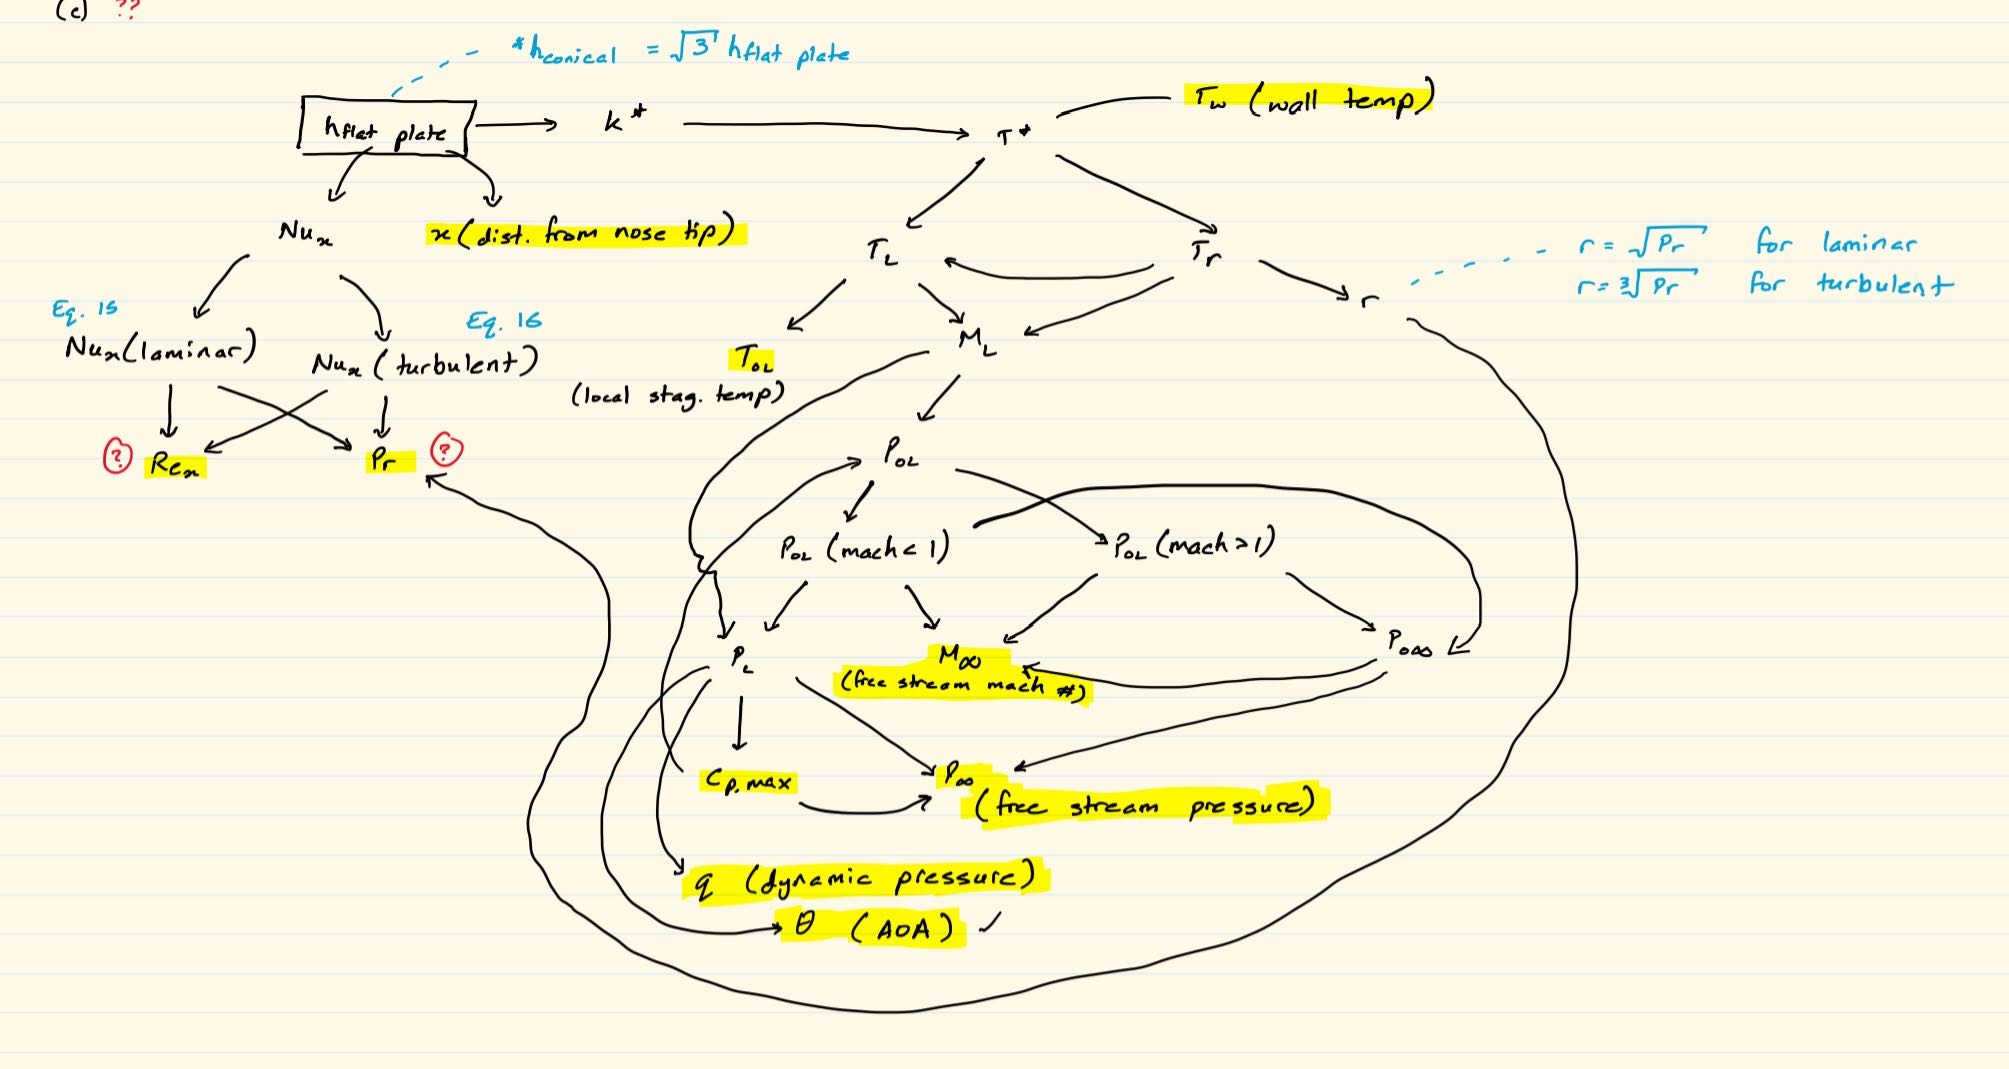 (c) ??
*h conical = √3 h flat plate
T w (wall temp)
h flat plate
k*
T*
Nu x
x (dist. from nose tip)
T L
T r
r = √Pr for laminar
r = ∛Pr for turbulent
r
Eq. 15
Eq. 16
Nu x (laminar)
Nu x (turbulent)
T OL
(local stag. temp)
M L
? Re x
Pr ?
P OL
P OL (mach < 1)
P OL (mach > 1)
P L
M ∞
(free stream mach #)
P O∞
C p, max
P ∞
(free stream pressure)
q (dynamic pressure)
θ (AOA) ✓